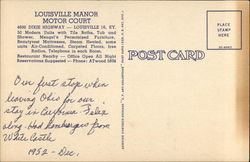 LOUISVILLE MANOR
MOTOR COURT
4600 DIXIE HIGHWAY — LOUISVILLE 16, KY.
30 Modern Units with Tile Baths, Tub and
Shower, Mengel's Permanized Furniture,
Beautyrest Mattresses, Steam Heated, some
units Air-Conditioned, Carpeted Floors, free
Radios, Telephone in each Room.
Restaurant Nearby — Office Open All Night
Reservations Suggested — Phone:
POST CARD
PLACE
STAMP
HERE
Our first stop when
leaving Ohio for our
stay in California
along. Had hamburgers from
White Castle
1952 - Dec.